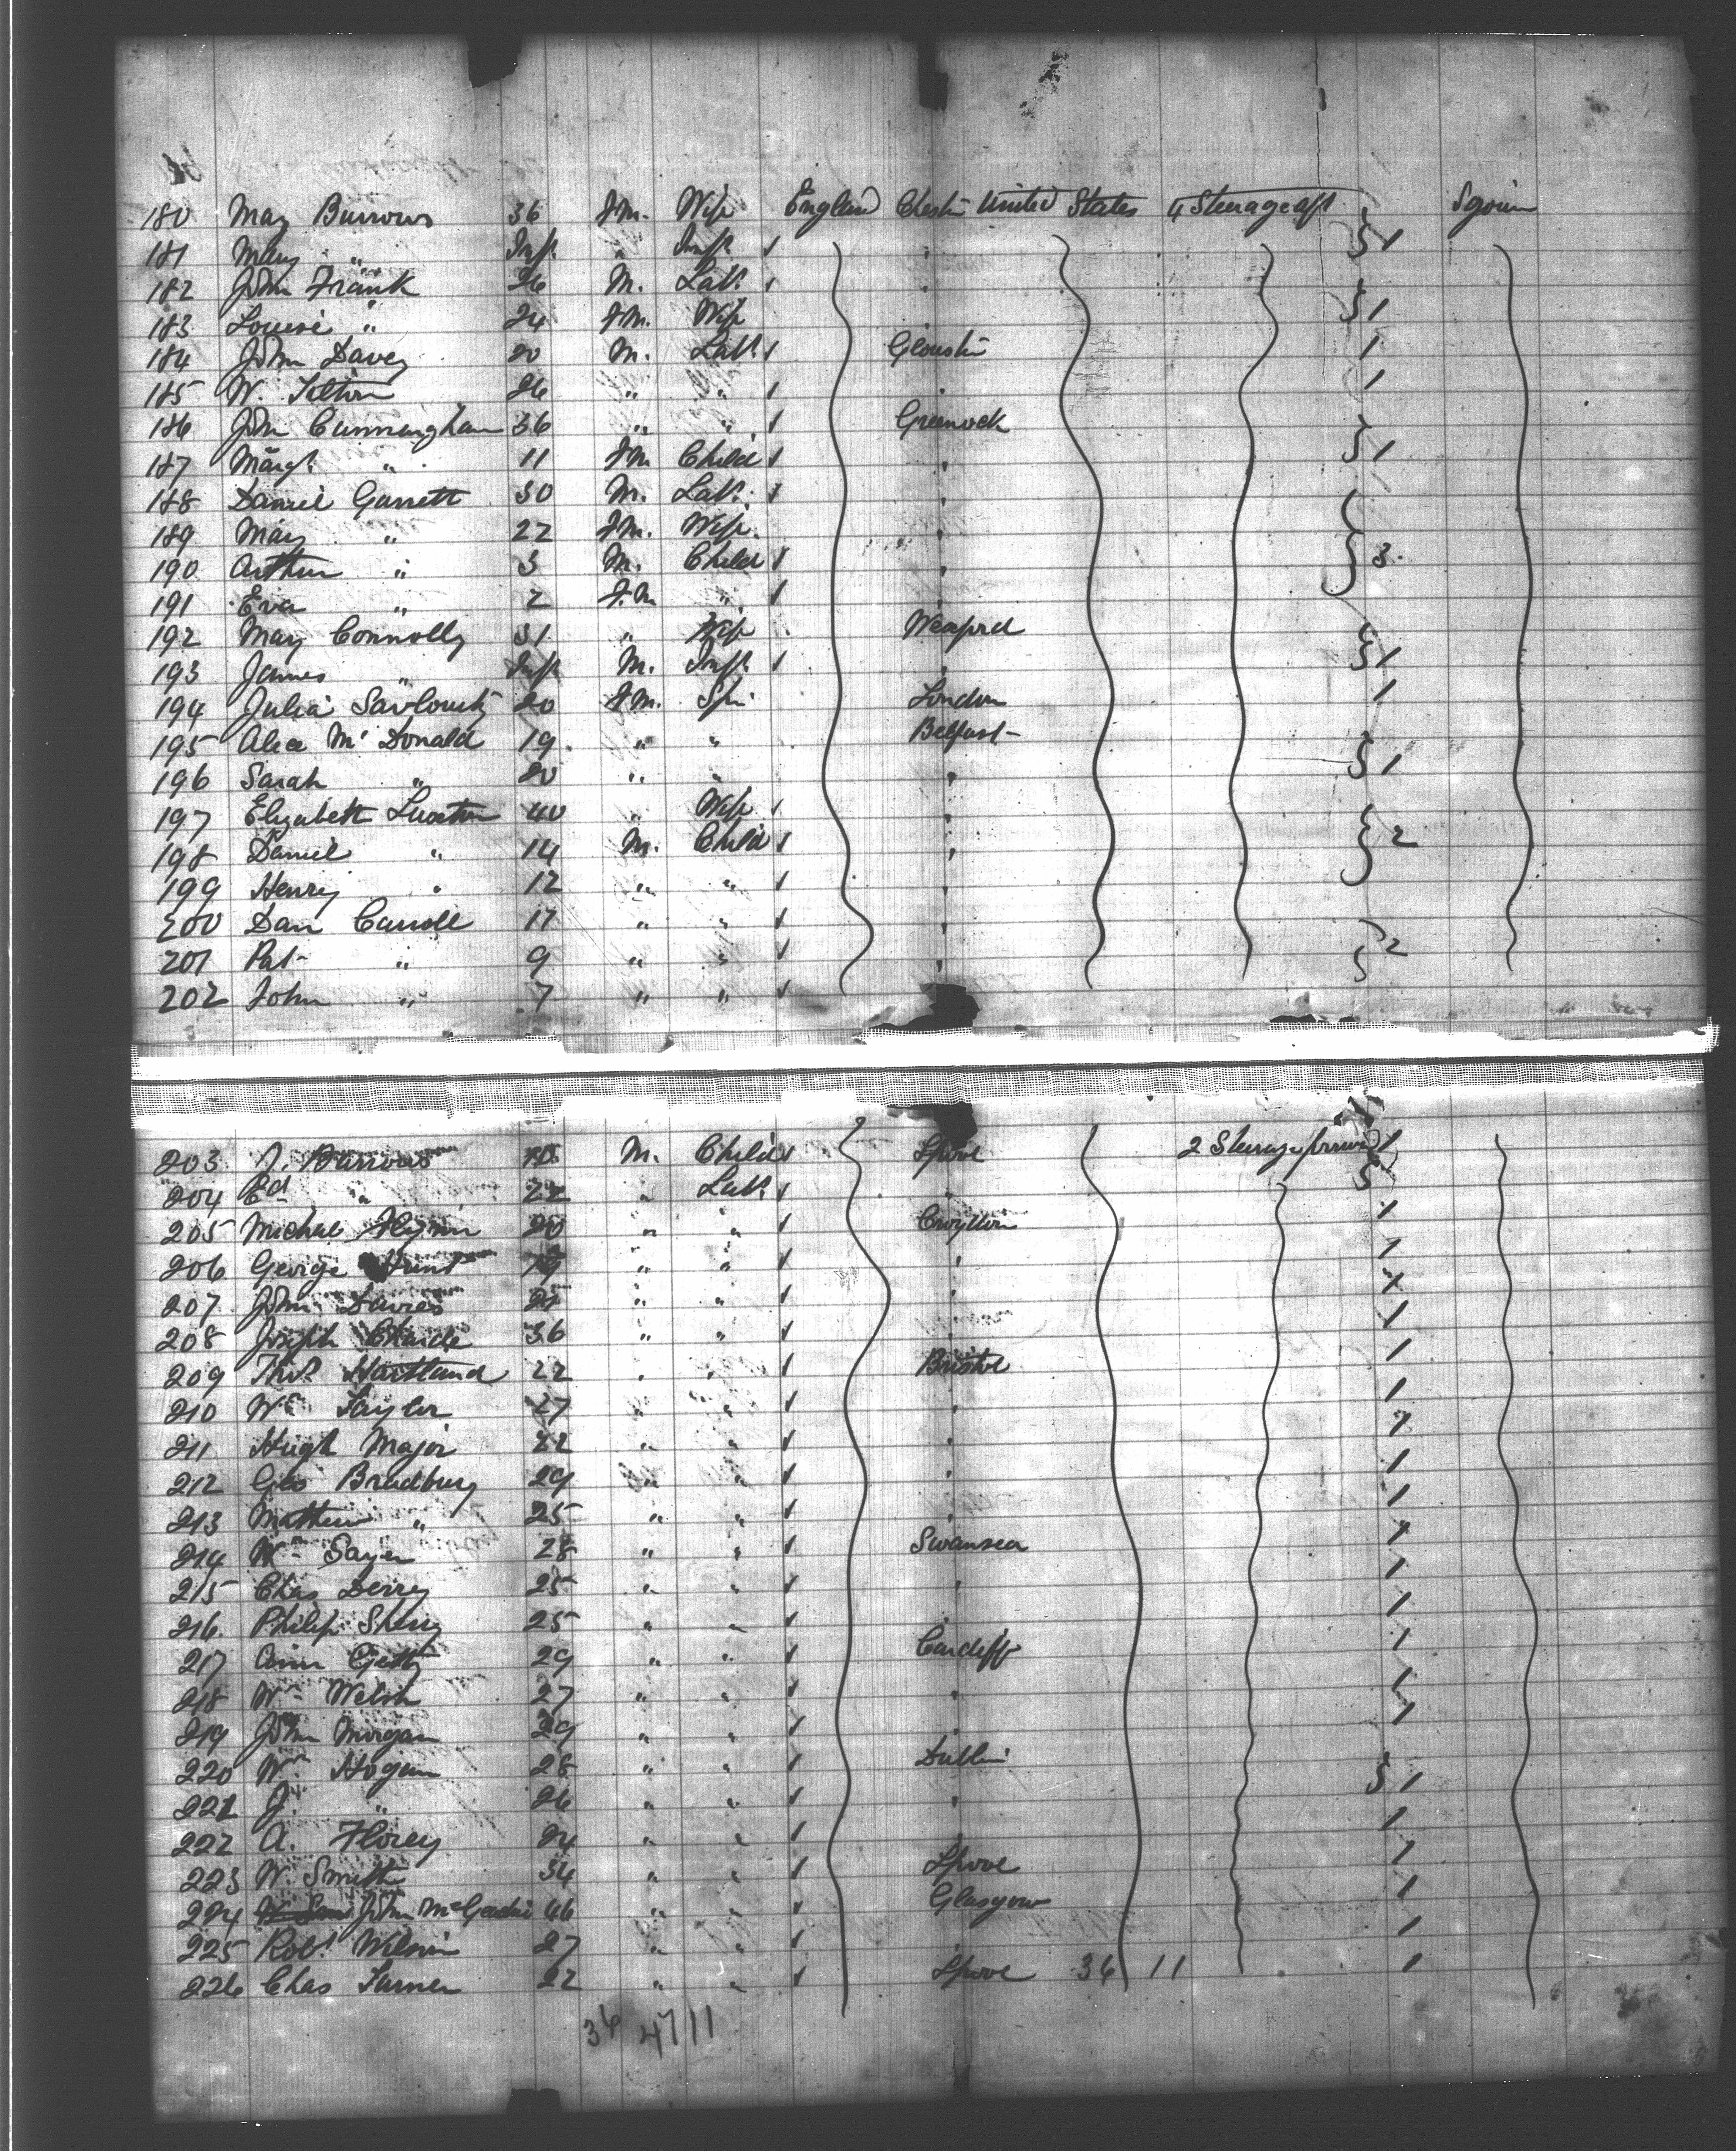 180 May Burrows 36 Fm. Wife England Chester United States 4 Steerage aft Sojourn
181 Mary " Inft. " Inft. ✓ "
182 John Frank 26 M. Labr. ✓ " 1
183 Louise " 24 Fm. Wife
184 John Davey 20 M. Labr. ✓ Glouster 1
185 W. Tilton 26 " " ✓ " 1
186 John Cunningham 36 " " ✓ Greenock
187 Margt. " 11 Fm Child ✓ " 1
188 Daniel Garrett 30 M. Labr. ✓ "
189 Mary " 22 Fm. Wife. "
190 Arthur " 3 M. Child ✓ " 3
191 Eva " 2 Fm " ✓ "
192 Mary Connolly 31 " Wife Wexford
193 James " Inft M. Inft. ✓ " 1
194 Julia 20 Fm. Spi London 1
195 Alice Mc Donald 19 " " Belfast
196 Sarah " 20 " " " 1
197 Elizabeth Luxton 40 " Wife "
198 Daniel " 14 M. Child ✓ " 2
199 Henry " 12 " " ✓ "
200 Dan Carroll 11 " " ✓ "
201 Pat " 9 " " ✓ " 2
202 John " 7 " " ✓
203 J. Burrows M. Child ✓ Lpool 2 Steerage 1
204 Ed " 22 " Labr. ✓
205 Michael Flynn 20 " " ✓ Croydon 1
206 George Hunt 19 " " ✓ " 1
207 John Davies 21 " " ✓ 1
208 Joseph 36 " " ✓ 1
209 Thos. Hartland 22 " " ✓ Bristol 1
210 Wm Taylor 27 " " ✓ " 1
211 Hugh Major 22 " " ✓ " 1
212 Geo Bradbury 29 " " ✓ " 1
213 Matthew " 25 " " ✓ 1
214 Wm Sayer 28 " " ✓ Swansea 1
215 Chas Derry 25 " " ✓ " 1
216. Philip Sherry 25 " " ✓ " 1
217 29 " " ✓ Cardiff 1
218 Wm Welsh 27 " " ✓ " 1
219 John Morgan 29 " " ✓ 1
220 Wm Hogan 28 " " ✓ Dublin
221 J. " 26 " " ✓ " 1
222 A. Florey 24 " " ✓ 1
223 W. Smith 34 " " ✓ Lpool 1
224 John 46 " " ✓ Glasgow 1
225 Robt Wilson 27 " " ✓ " 1
226 Chas Turner 22 " " ✓ Lpool 36 11 1
36 47/11